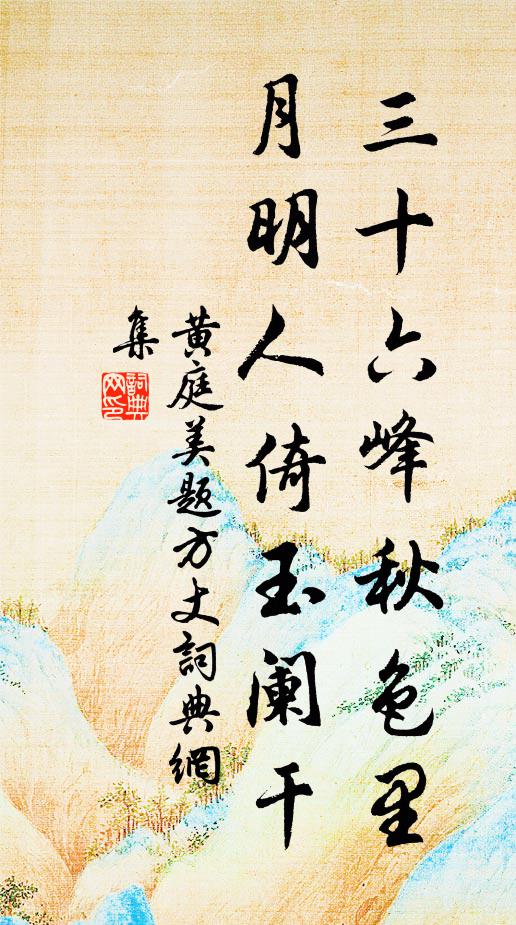 三十六峰秋色里
月明人倚玉阑干
黄庭美题方丈詞典網
集
詞典
网印